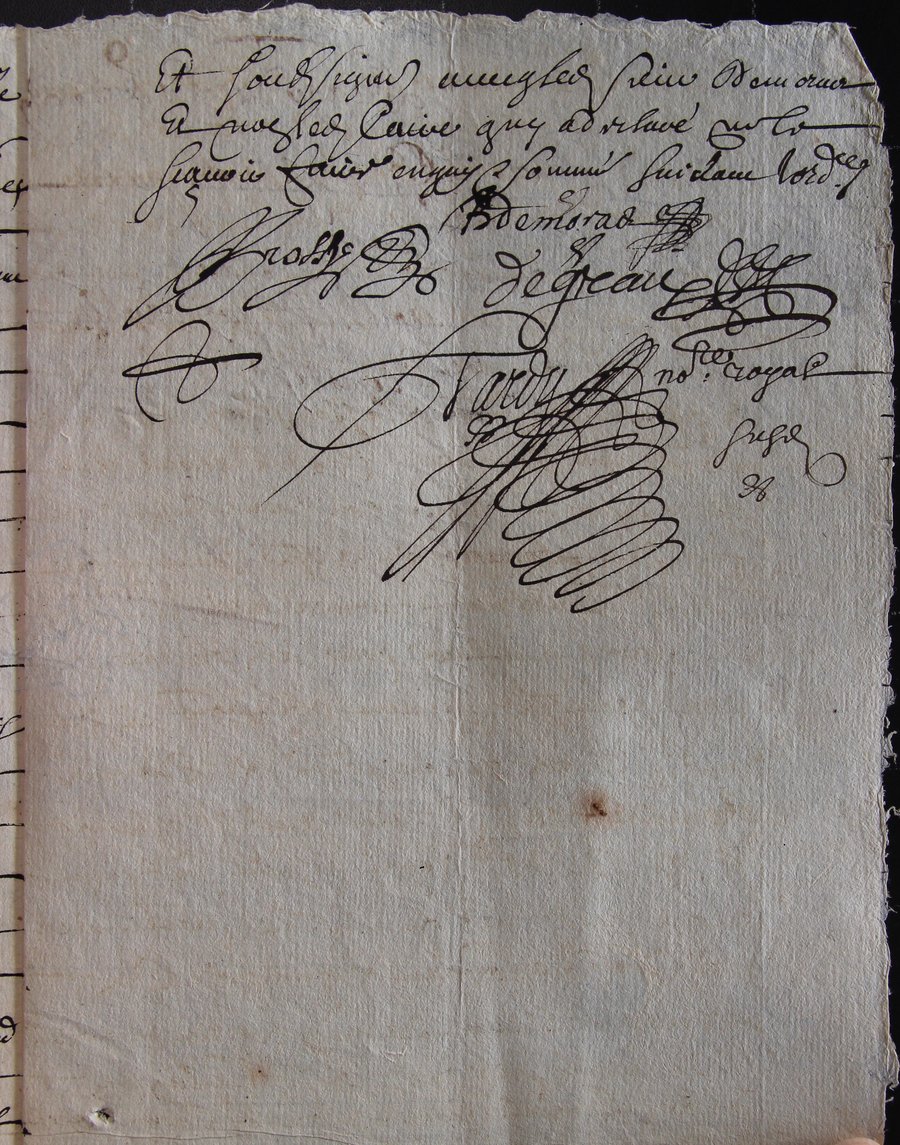 Et soubsignés avecq led sieur Demorad
Et non led Claire quy a desclaré ne le
sçavoir faire enquis et sommé suivant l'ordce
Demorad
Brosse
degreau
Tardy nore royal